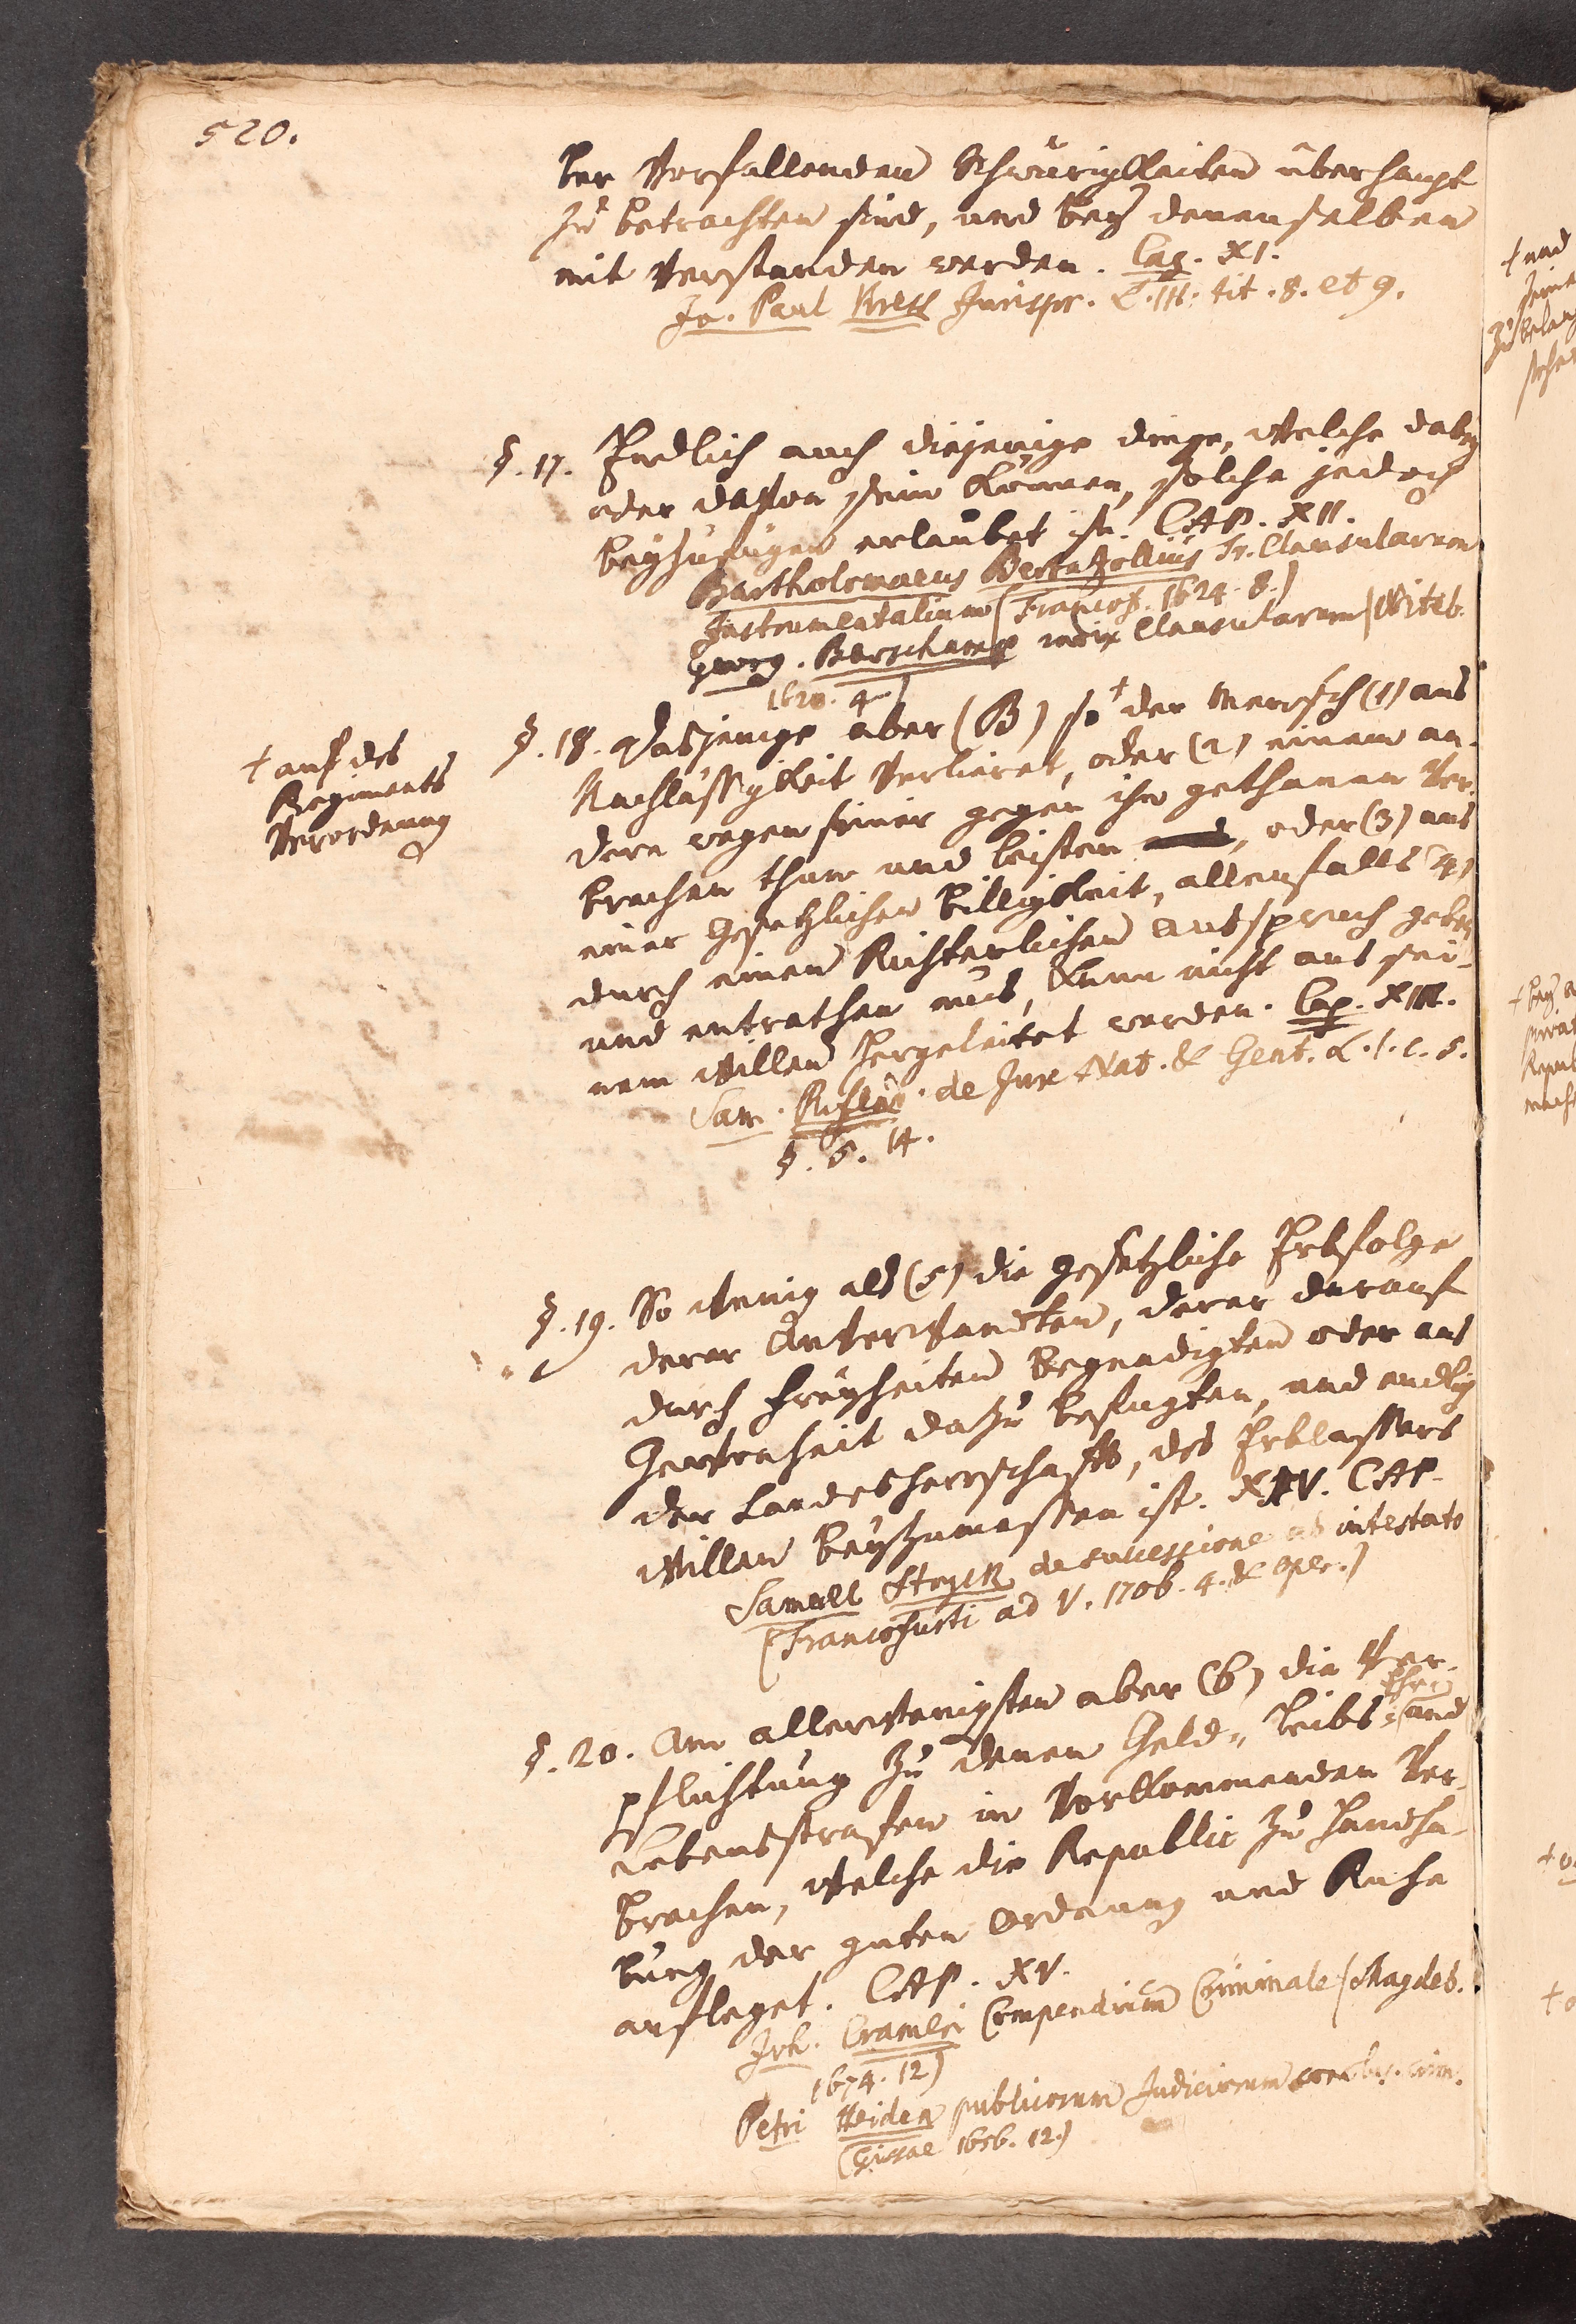 520.
ber Vorfallenden Schwürigkeiten überhaupt
zu betrachten sind, und bey denenselben
mit Verstanden werden. Cap. XI.
Jo. Paul Kress Jurispr. L. III. tit. 8. et 9.
§. 17. Endlich auch diejenige dinge, Welche dabey
oder daVon sein können, solche jedoch
beyzufügen erlaubet ist. CAP. XII.
Bartholomaeus Bertazollius Tr. Clausularum
Instrumentalium (Francof. 1624. 8.)
Georg. Berschamp index Clausularum (Witeb.
1620. 4)
§. 18. dasjenige aber (B) so † der Mensch (1) aus
Nachlässigkeit Verlieret, oder (2) einem an-
dern wegen seiner gegen ihn gethanen Ver-
brechen thun und leisten, oder (3) aus
einer Gesetzlichen billigkeit, allenfalls (4)
durch einen Richterlichen Ausspruch geben
und entrathen mus, kann nicht aus sei-
nem Willen hergeleitet werden. Cap. XIII.
Sam. Pufend. de Jure Nat. & Gent. L. 1. c. 5.
§. 5. 14.
† auf des
Regiments
Verordnung
§. 19. So Wenig als (5) die gesetzliche Erbfolge
derer AnVerWandten, derer darauf
durch freyheiten begnadigten oder aus
Gewonheit dazu befugten, und endlich
der Landesherrschafft, des Erblassers
Willen beyzumessen ist. XIV. CAP.
Samuel Stryck de successione ab intestato
(Francofurti ad V. 1706. 4. & oper.)
§. 20. Am allerWenigsten aber (6) die Ver-
pflichtung zu denen Geld-, leibs- Ehr- und
Lebensstrafen in Vorkommenden Ver-
brechen, Welche die Republic zu handha-
bung der guten Ordnung und Ruhe
aufleget. CAP. XV.
Joh. Crameri Compendium Criminale (Magdeb.
1674. 12)
Petri Heiden publicorum Judiciorum crim.
(Gissae 1656. 12.)